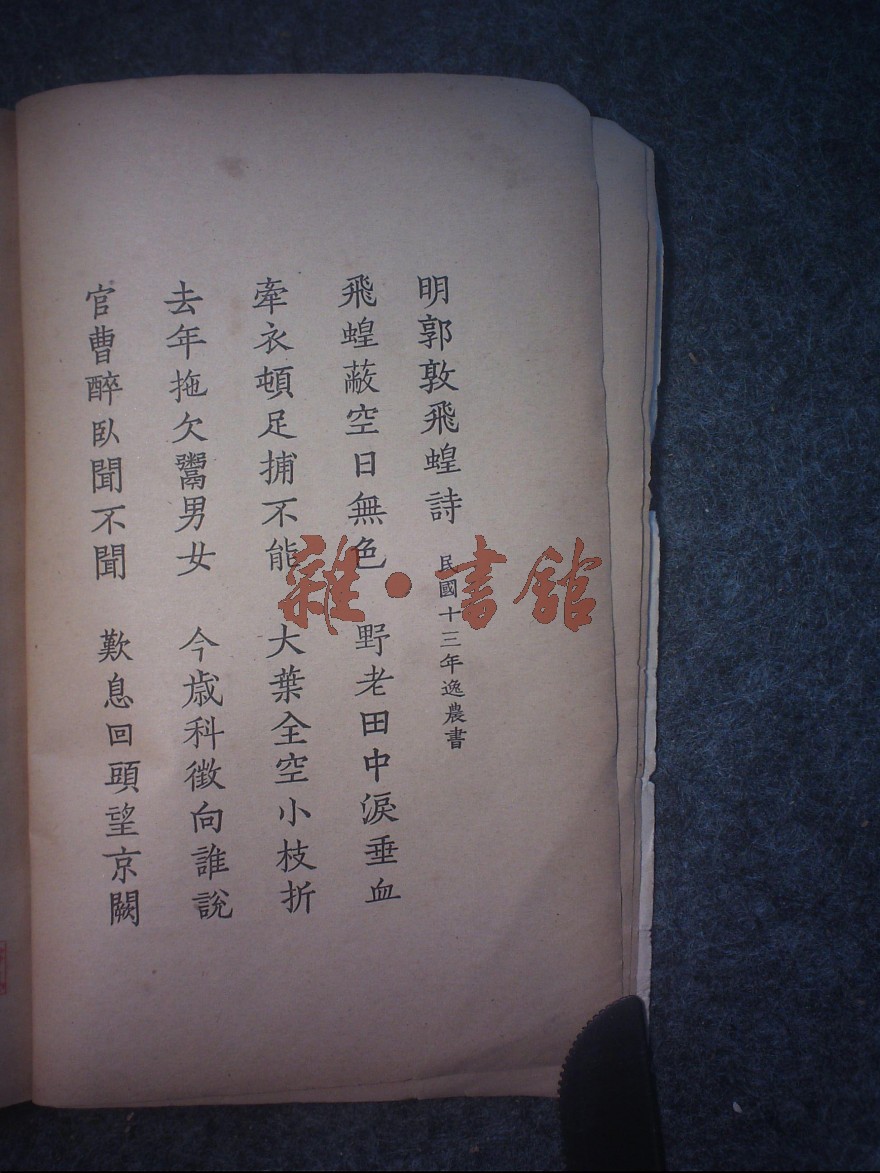 明郭敦飛蝗詩 民國十三年逸農書
飛蝗蔽空日無色 野老田中淚垂血
牽衣頓足捕不能 大葉全空小枝折
去年拖欠鬻男女 今歲科徵向誰說
官曹醉臥聞不聞 歎息回頭望京闕
雜·書館